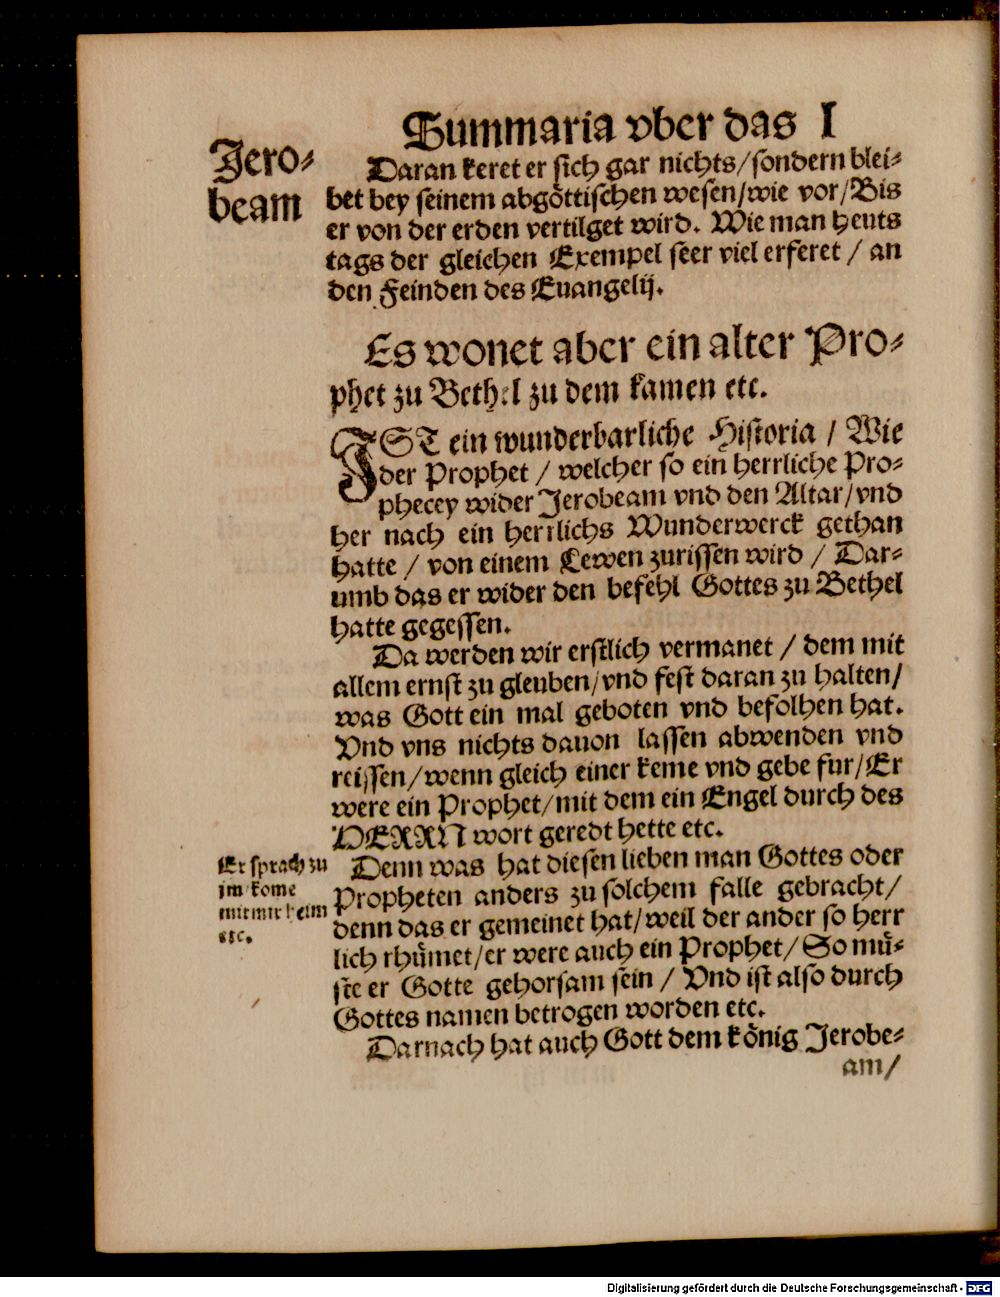 Summaria vber das I
Jero⸗
beam
Daran keret er sich gar nichts/sondern blei⸗
bet bey seinem abgöttischen wesen/wie vor/Bis
er von der erden vertilget wird. Wie man heuts
tags der gleichen Exempel seer viel erferet / an
den Feinden des Euangelij.
Es wonet aber ein alter Pro⸗
phet zu Bethel zu dem kamen etc.
IST ein wunderbarliche Historia / Wie
der Prophet / welcher so ein herrliche Pro⸗
phecey wider Jerobeam vnd den Altar/vnd
her nach ein herrlichs Wunderwerck gethan
hatte / von einem Lewen zurissen wird / Dar⸗
umb das er wider den befehl Gottes zu Bethel
hatte gegessen.
Da werden wir erstlich vermanet / dem mit
allem ernst zu gleuben/vnd fest daran zu halten/
was Gott ein mal geboten vnd befolhen hat.
Vnd vns nichts dauon lassen abwenden vnd
reissen/wenn gleich einer keme vnd gebe fur/Er
were ein Prophet/mit dem ein Engel durch des
HERRN wort geredt hette etc.
Er sprach zu
im kome
mit mir heim
etc.
Denn was hat diesen lieben man Gottes oder
Propheten anders zu solchem falle gebracht/
denn das er gemeinet hat/weil der ander so herr
lich rhümet/er were auch ein Prophet/So mü⸗
ste er Gotte gehorsam sein / Vnd ist also durch
Gottes namen betrogen worden etc.
Darnach hat auch Gott dem könig Jerobe⸗
am/
Digitalisierung gefördert durch die Deutsche Forschungsgemeinschaft - DFG